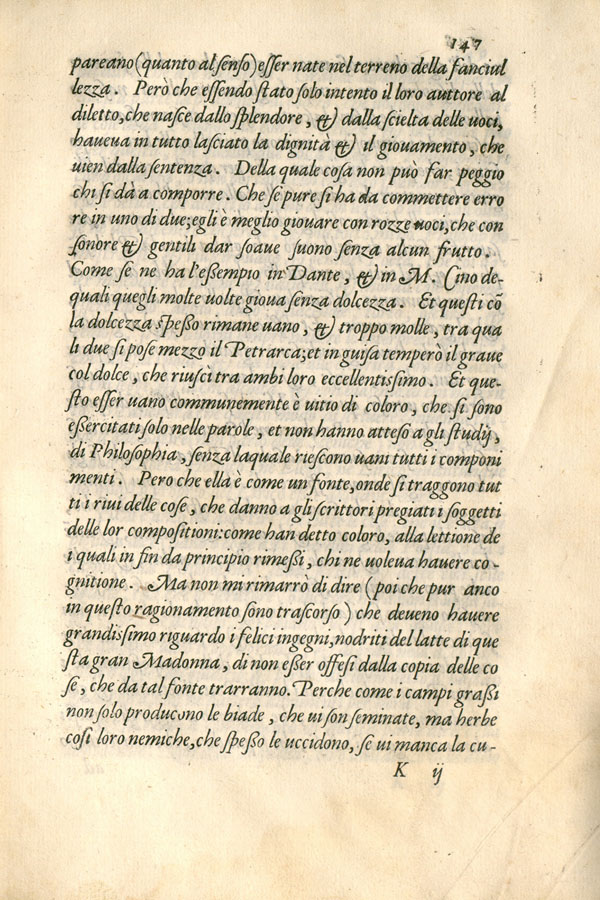 147
pareano (quanto al senso) esser nate nel terreno della fanciul
lezza. Però che essendo stato solo intento il loro auttore al
diletto, che nasce dallo splendore, & dalla scielta delle uoci,
haueua in tutto lasciato la dignità & il giouamento, che
uien dalla sentenza. Della quale cosa non può far peggio
chi si dà a comporre. Che se pure si ha da commettere erro
re in uno di due; egli è meglio giouare con rozze uoci, che con
sonore & gentili dar soaue suono senza alcun frutto.
Come se ne ha l'eßempio in Dante, & in M. Cino de-
quali quegli molte uolte gioua senza dolcezza. Et questi cõ
la dolcezza speßo rimane uano, & troppo molle, tra qua
li due si pose mezzo il Petrarca; et in guisa temperò il graue
col dolce, che riuscì tra ambi loro eccellentissimo. Et que-
sto esser uano communemente è uitio di coloro, che si sono
eßercitati solo nelle parole, et non hanno atteso a gli studij,
di Philosophia, senza laquale riescono uani tutti i componi
menti. Pero che ella è come un fonte, onde si traggono tut
ti i riui delle cose, che danno a gli scrittori pregiati i soggetti
delle lor compositioni: come han detto coloro, alla lettione de
i quali in fin da principio rimeßi, chi ne uoleua hauere co-
gnitione. Ma non mi rimarrò di dire (poi che pur anco
in questo ragionamento sono trascorso) che deueno hauere
grandissimo riguardo i felici ingegni, nodriti del latte di que
sta gran Madonna, di non eßer offesi dalla copia delle co
se, che da tal fonte trarranno. Perche come i campi graßi
non solo producono le biade, che ui son seminate, ma herbe
cosi loro nemiche, che speßo le uccidono, se ui manca la cu-
K ij